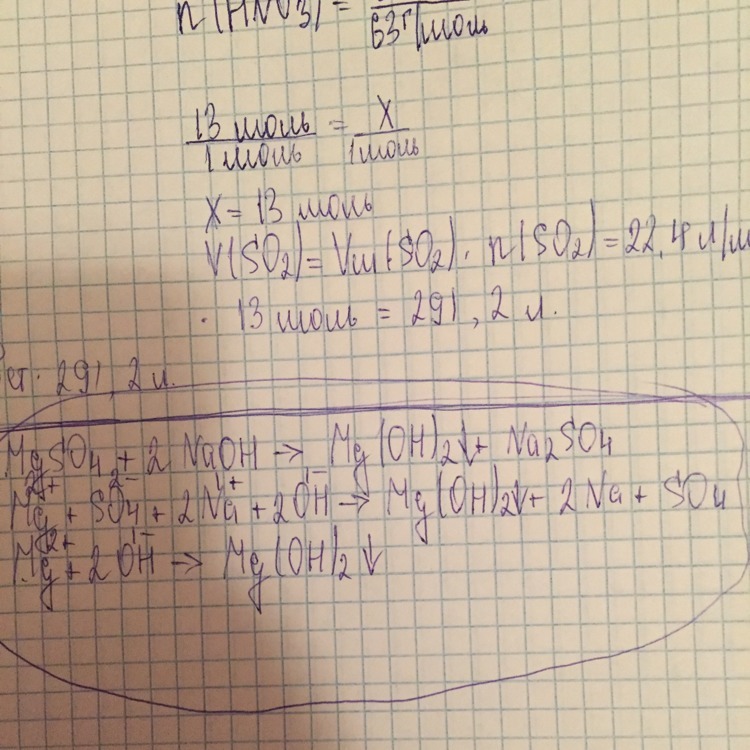 n(HNO3) =
63г/моль
13 моль = X
1 моль 1 моль
X = 13 моль
V(SO2) = Vm(SO2) · n(SO2) = 22,4 л/м
· 13 моль = 291,2 л.
ет: 291,2 л.
MgSO4 + 2 NaOH → Mg(OH)2↓ + Na2SO4
Mg2+ + SO4 2- + 2Na 1+ + 2OH 1- → Mg(OH)2↓ + 2Na + SO4
Mg2+ + 2OH 1- → Mg(OH)2↓